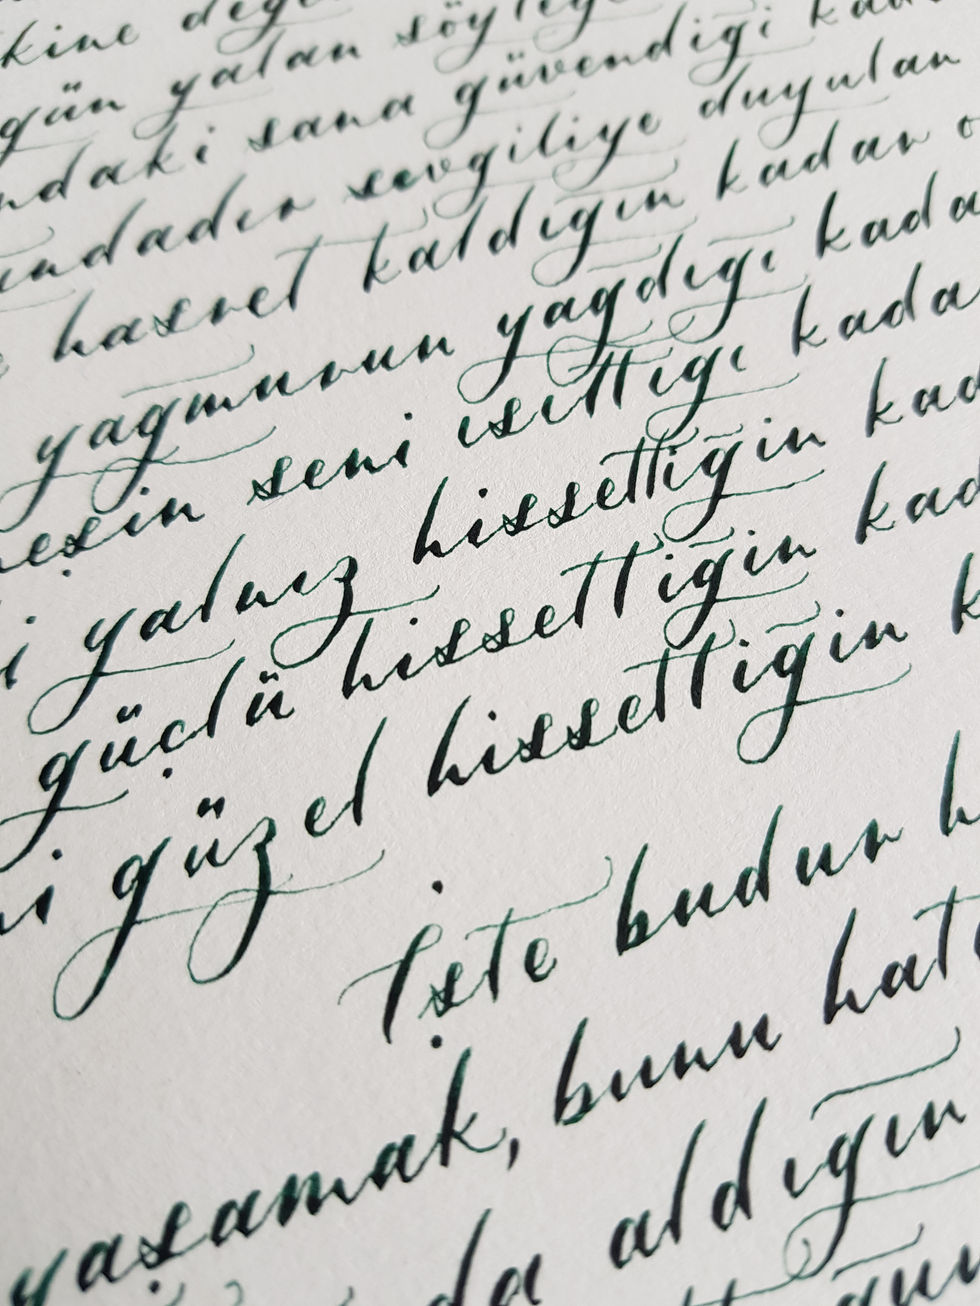 kine değe
gün yalan söyledi
ndaki sana güvendiği kada
ındadır sevgiliye duyulan
hasret kaldığın kadar
yağmurun yağdığı kada
neşin seni ısıttığı kada
i yalnız hissettiğin kad
güçlü hissettiğin kad
ni güzel hissettiğin k
İşte budur h
yaşamak, bunu hat
da aldığın